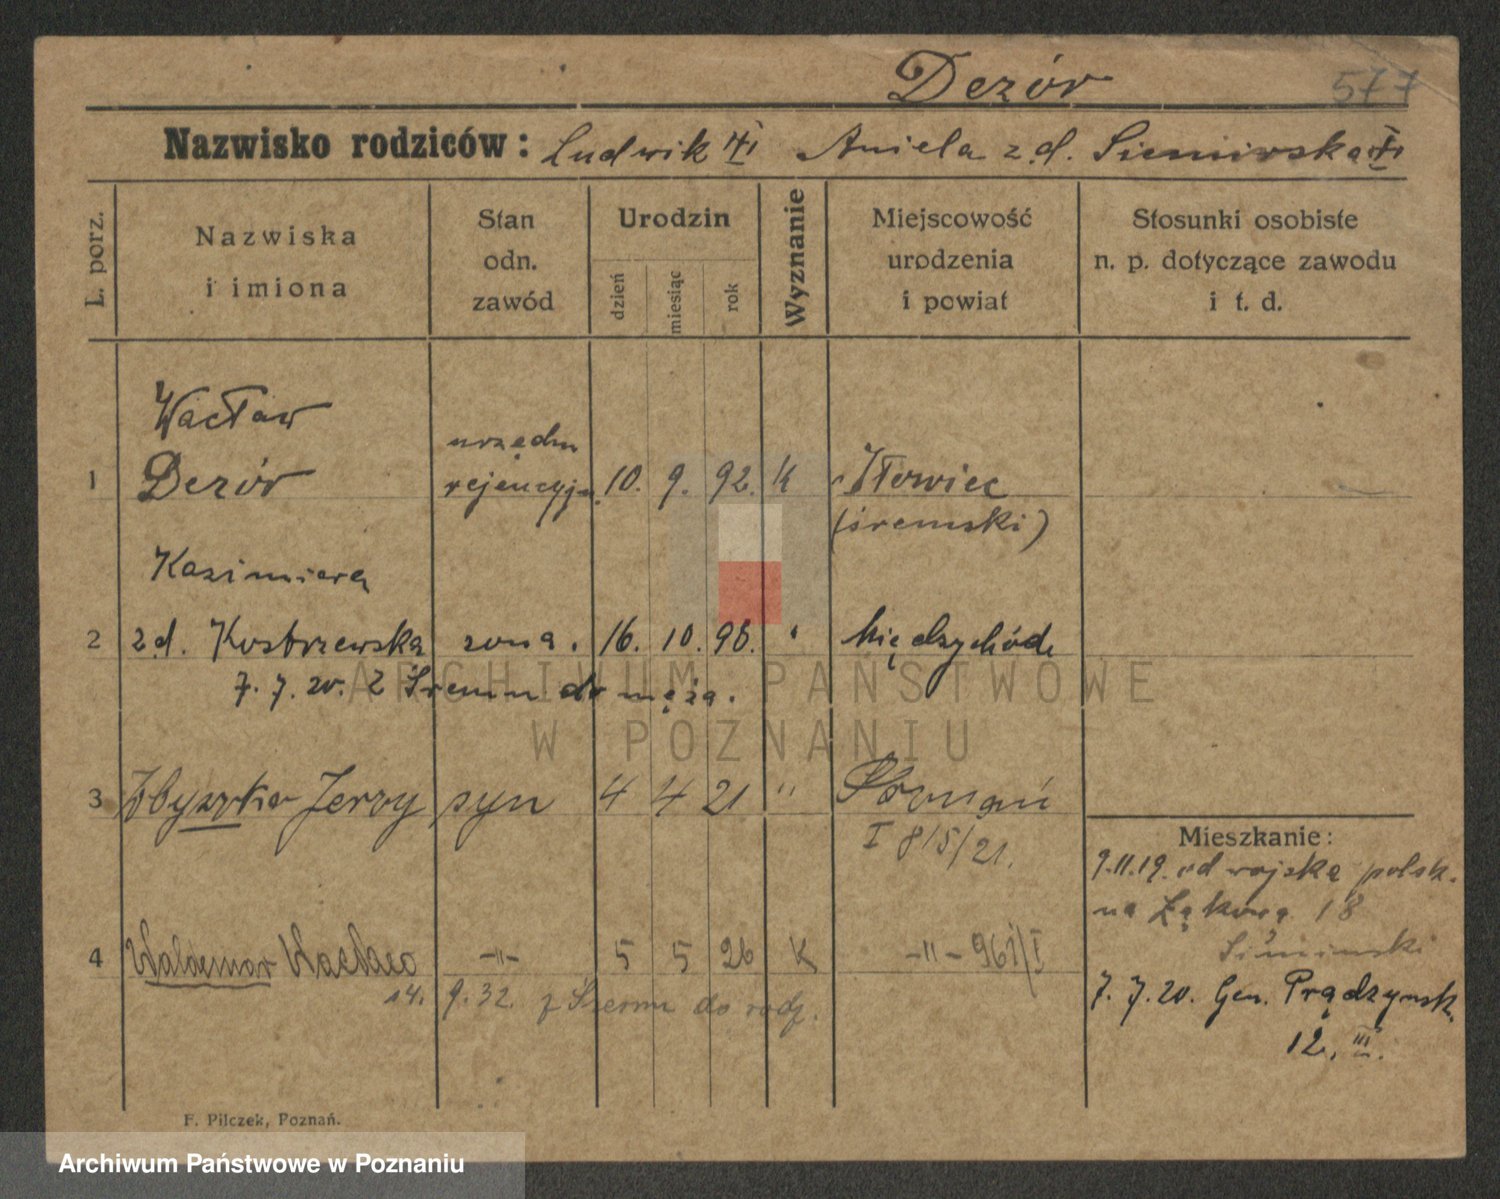 Dezór 577
Nazwisko rodziców: Ludwik Aniela z d.
L. porz.
Nazwiska i imiona
Stan odn. zawód
Urodzin
dzień
miesiąc
rok
Wyznanie
Miejscowość urodzenia i powiat
Stosunki osobiste n. p. dotyczące zawodu i t. d.
Wacław
urzędn
1 Dezór rejencyjn. 10. 9. 92. k Iłowiec
(śremski)
Kazimiera
2 z d. Kostrzewska żona. 16. 10. 96. " Międzychód
7. 7. 20. z Śremu do męża.
ARCHIWUM PAŃSTWOWE
W POZNANIU
3 Jerzy syn 4 4 21 " Poznań
I 8/5/21.
Mieszkanie:
9.11.19. od wojska polsk.
na Łąkową 18
4 Waldemar Wacław -"- 5 5 26 K -"- 961/I
14. 9. 32. z Śremu do rodz.
7. 7. 20. Gen. Prądzyńsk.
12. III.
F. Pilczek, Poznań.
Archiwum Państwowe w Poznaniu